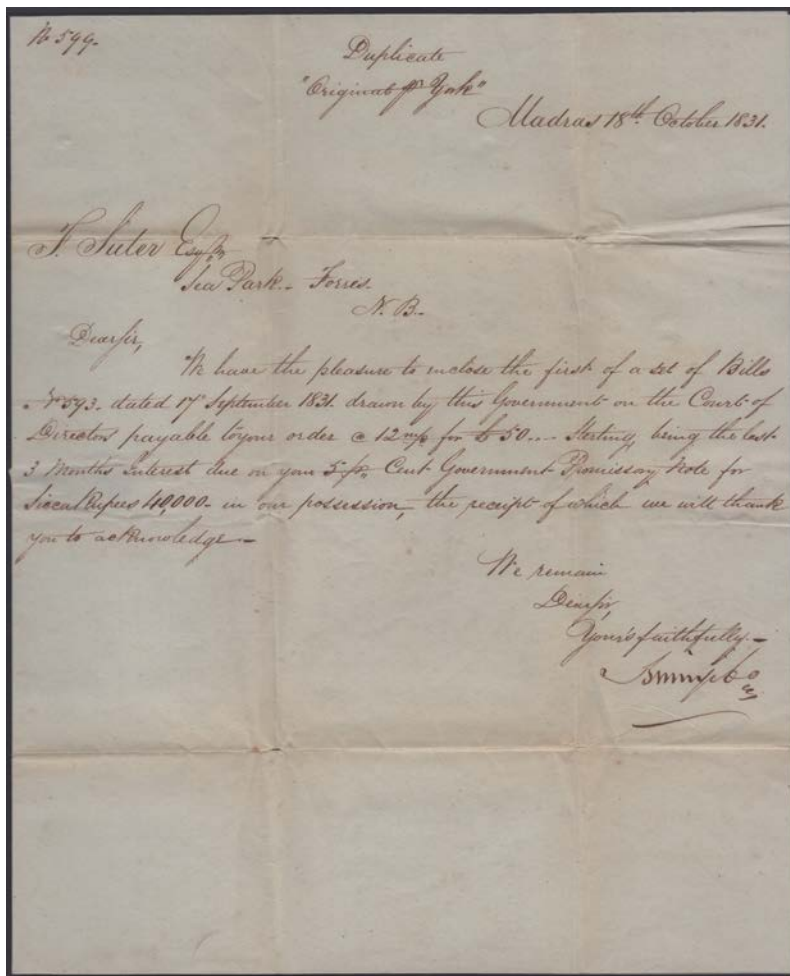 No 599.
Duplicate
"Original pr York"
Madras 18th October 1831.
T. Suter Esqr
Sea Park - Forres.
N. B.
Dear Sir,
We have the pleasure to enclose the first of a set of Bills
No 593. dated 17 September 1831 drawn by this Government on the Court of
Directors payable to your order @ 12 m/s for £50 ... Sterling, being the last
3 Months Interest due on your 5 pr. Cent Government Promissory Note for
Sicca Rupees 40,000 - in our possession, the receipt of which we will thank
you to acknowledge -
We remain
Dear Sir,
Your's faithfully -